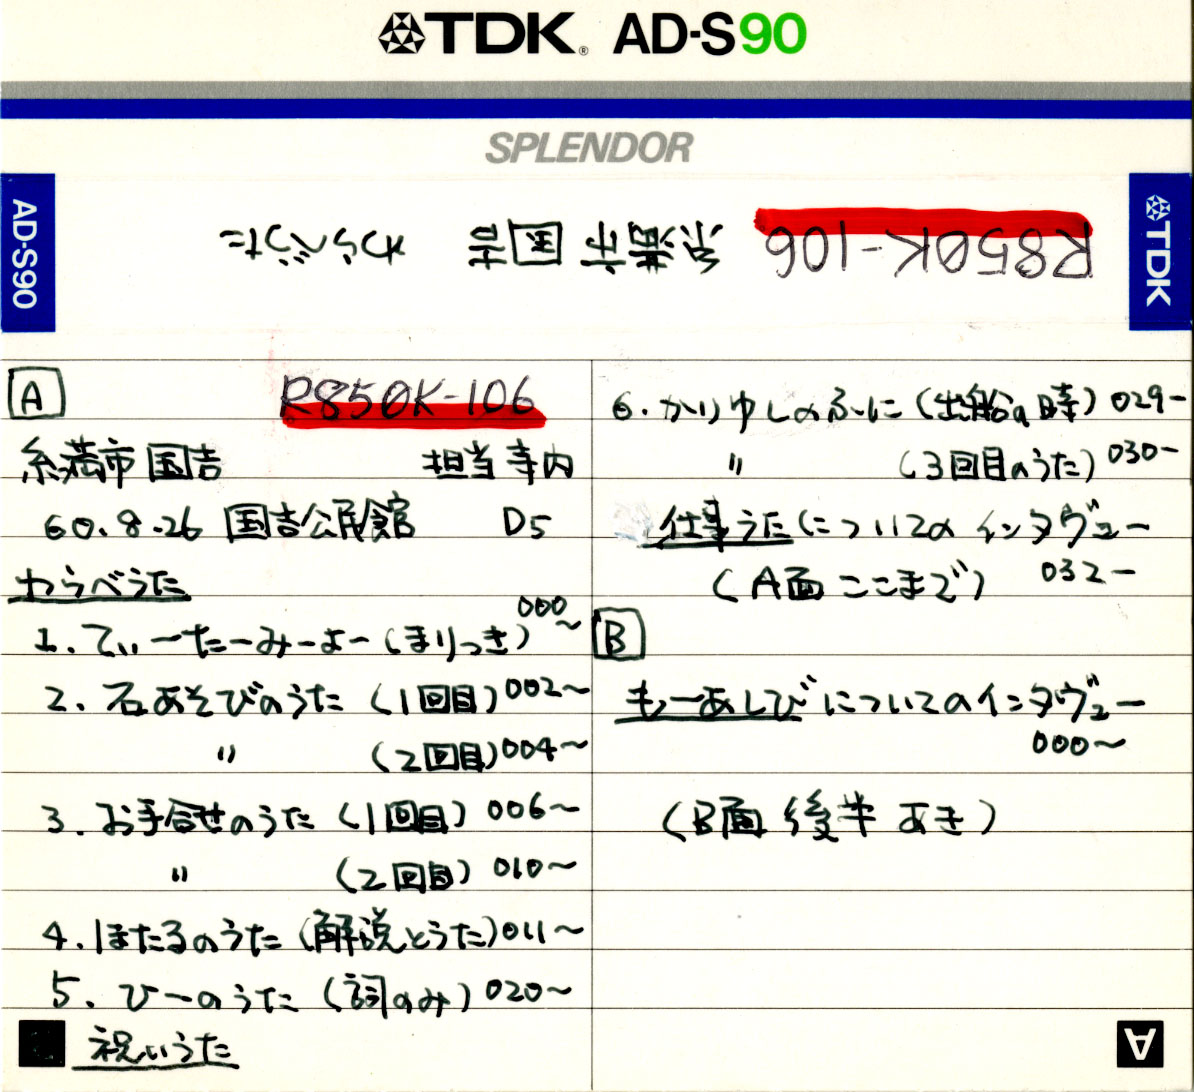 TDK® AD-S90
SPLENDOR
AD-S90
R850K-106 糸満市 国吉 わらべうた
TDK
A
R850K-106
糸満市 国吉 担当 寺内
60.8.26 国吉公民館 D5
わらべうた
1. てぃーたーみーよー(まりつき) 000~
2. 石あそびのうた (1回目) 002~
〃 (2回目) 004~
3. お手合せのうた (1回目) 006~
〃 (2回目) 010~
4. ほたるのうた (解説とうた) 011~
5. ひーのうた (詞のみ) 020~
祝いうた
6. かりゆしのふに (出船の時) 029-
〃 (3回目のうた) 030-
仕事うたについてのインタヴュー
(A面ここまで) 032-
B
もーあしびについてのインタヴュー
000~
(B面 後半 あき)
A